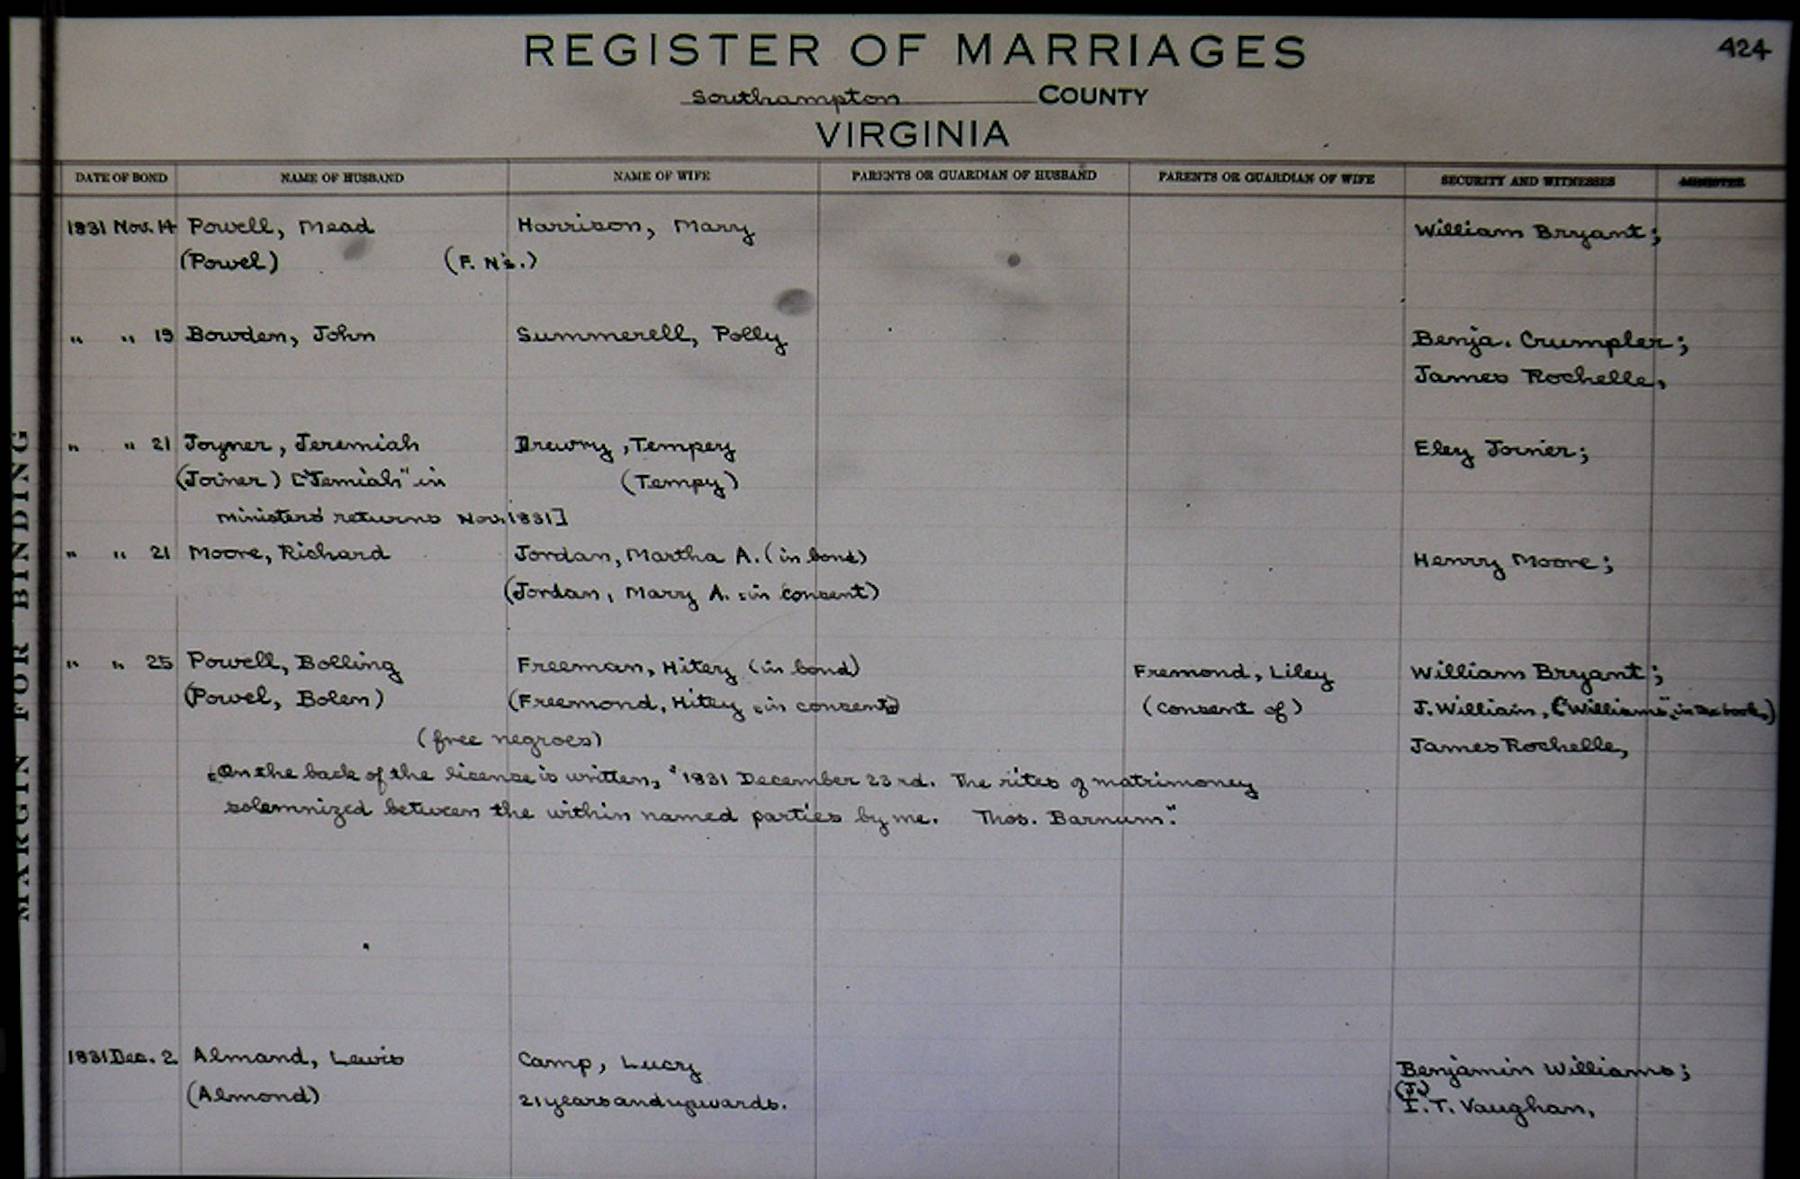 424
REGISTER OF MARRIAGES
Southampton COUNTY
VIRGINIA
DATE OF BOND NAME OF HUSBAND NAME OF WIFE PARENTS OR GUARDIAN OF HUSBAND PARENTS OR GUARDIAN OF WIFE SECURITY AND WITNESSES MINISTER
1831 Nov. 14 Powell, Mead Harrison, Mary William Bryant;
(Powel) (F. N's.)
" " 19 Bowden, John Summerell, Polly Benja. Crumpler;
James Rochelle,
" " 21 Joyner, Jeremiah Drewry, Tempey Eley Joiner;
(Joiner) ["Jemiah" in (Tempy)
ministers' returns Nov. 1831]
" " 21 Moore, Richard Jordan, Martha A. (in bond) Henry Moore;
(Jordan, Mary A. in consent)
" " 25 Powell, Bolling Freeman, Hitey (in bond) Fremond, Liley William Bryant;
(Powel, Bolen) (Freemond, Hitey in consent) (consent of) J. William, ("Williams" in tax books)
(free negroes) James Rochelle,
On the back of the license is written, "1831 December 23rd. The rites of matrimoney
solemnized between the within named parties by me. Thos. Barnum."
1831 Dec. 2 Almand, Lewis Camp, Lucy Benjamin Williams;
(Almond) 21 years and upwards. (J.)
I. T. Vaughan,
MARGIN FOR BINDING